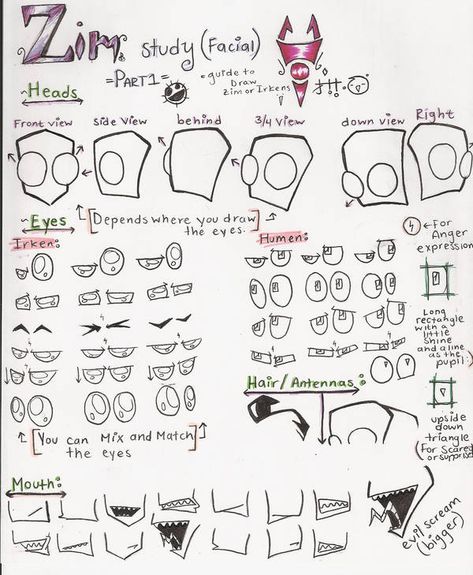 Zim study (Facial)
=Part 1=
• guide to
Draw
Zim or Irkens
!!!
~Heads
Front view
side view
behind
3/4 view
down view
Right
[Depends where you draw
the eyes.]
~Eyes
Irken:
Humen:
←For
Anger
expression
Long
rectangle
with a
little
shine
and a line
as the
pupil:)
Hair/Antennas:
upside
down
triangle
(For scared
or surprised
[You can Mix and Match
the eyes]
Mouth:
evil scream
(bigger)